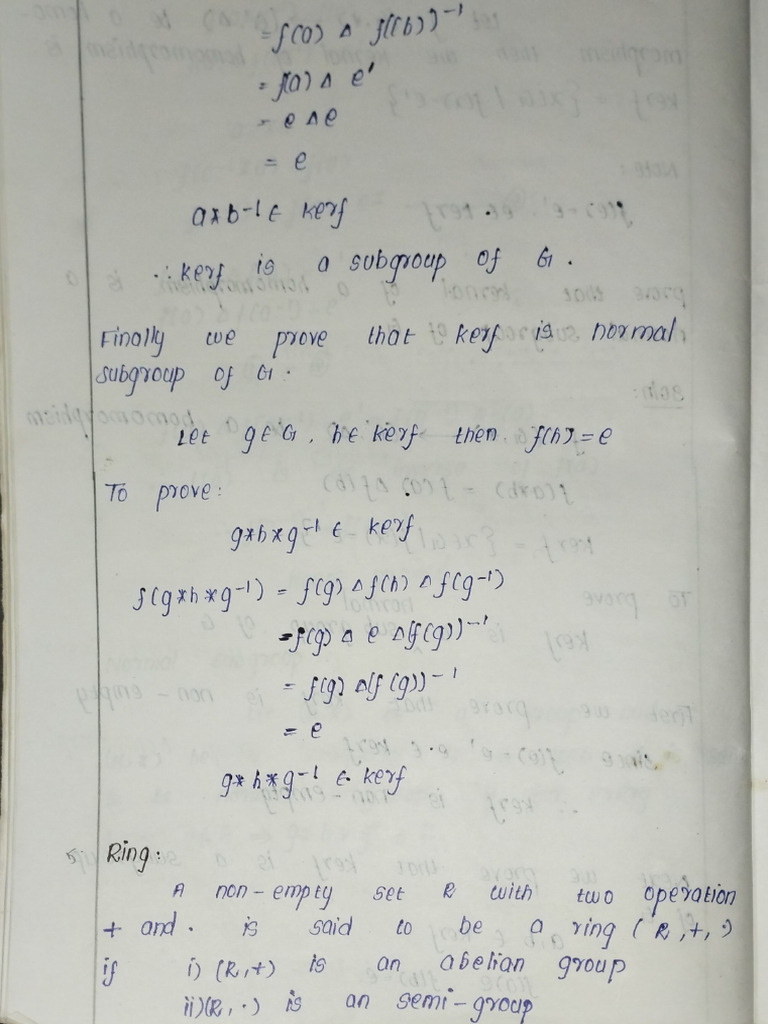 = f(a) Δ f((b))⁻¹
= f(a) Δ e'
= e Δ e
= e
a*b⁻¹ ∈ kerf
∴ kerf is a subgroup of G.
Finally we prove that kerf is normal
subgroup of G.
Let g ∈ G, h ∈ kerf then f(h) = e
To prove:
g*h*g⁻¹ ∈ kerf
f(g*h*g⁻¹) = f(g) Δ f(h) Δ f(g⁻¹)
= f(g) Δ e Δ (f(g))⁻¹
= f(g) Δ (f(g))⁻¹
= e
g*h*g⁻¹ ∈ kerf
5. Ring:
A non-empty set R with two operation
+ and · is said to be a ring (R, +, ·)
if i) (R, +) is an abelian group
ii) (R, ·) is an semi-group